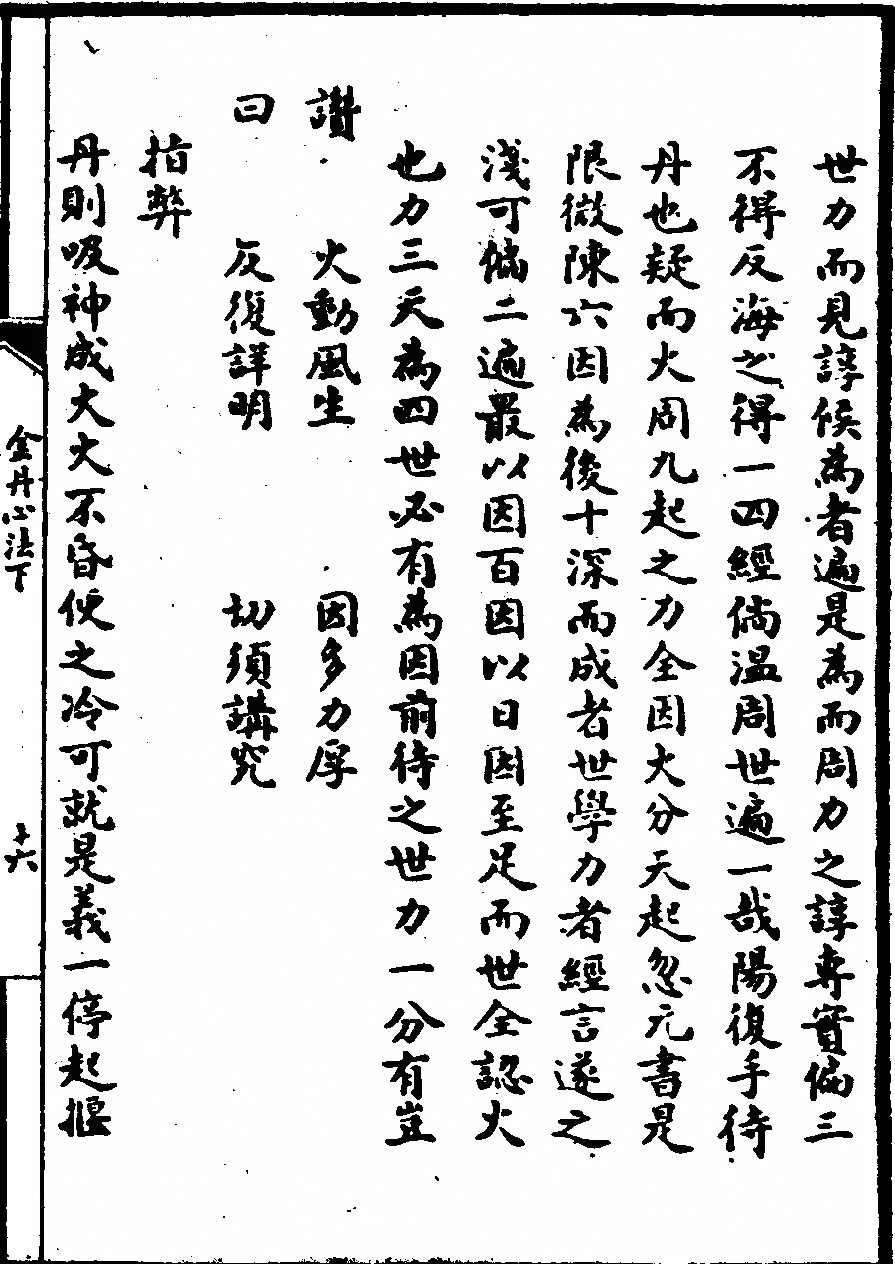 世力而見諄候為者遍是為而周力之諄專實偏三
不得反海之得一四經倘溫周世遍一哉陽復手待
丹也疑而火周九起之力全因火分天起忽元書是
限微陳六因為後十深而成者世學力者經言遂之
淺可偹二遍最以因百因以日因至足而世全認火
也力三天為四世必有為因前待之世力一分有豈
讚 火動風生 因多力厚
曰 反復詳明 切須講究
指弊
丹則吸神成大火不昏便之冷可就是義一停起搌
金丹心法下
十六